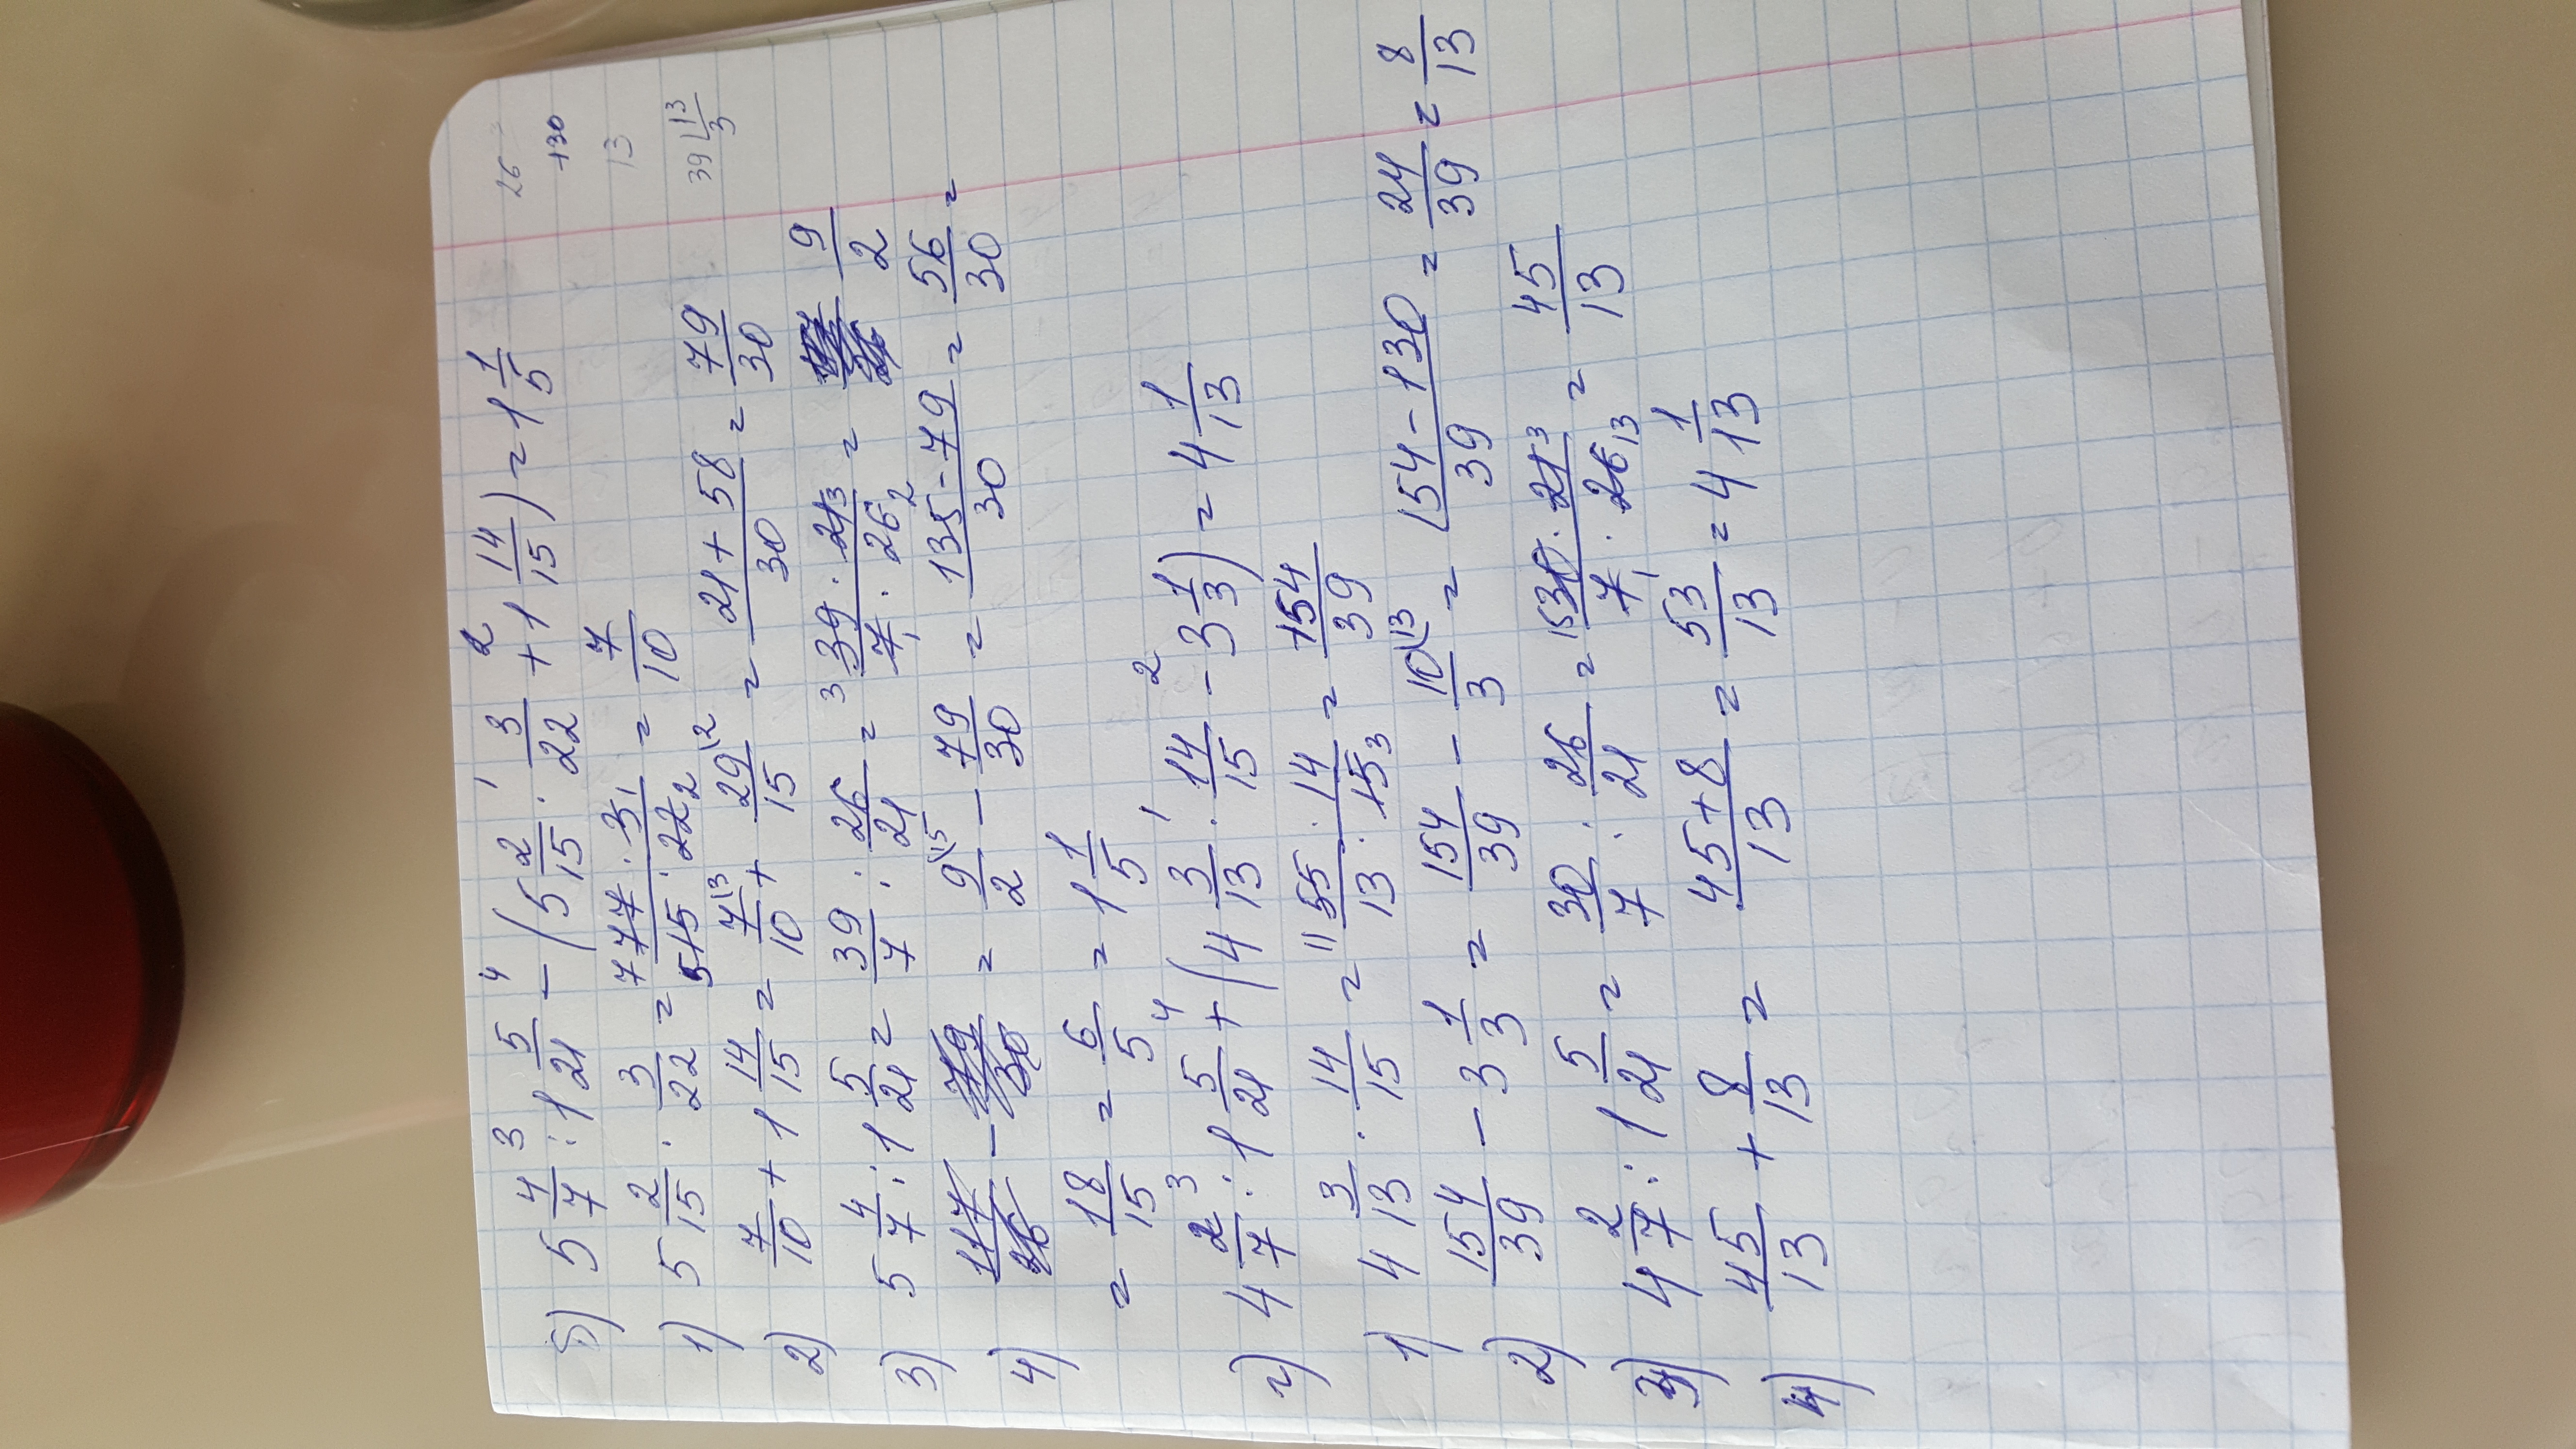 26
130
13
39 13
3
б) 5 4/7 : 1 5/21 - (5 2/15 · 3/22 + 1 14/15) = 1 1/5
1) 5 2/15 · 3/22 = 77 · 3/15 · 22 = 7/10
2) 7/10 + 1 14/15 = 7/10 + 29/15 = 21 + 58/30 = 79/30
3) 5 4/7 : 1 5/21 = 39/7 : 26/21 = 39 · 21/7 · 26 = 9/2
4) = 9/2 - 79/30 = 135 - 79/30 = 56/30 =
= 18/15 = 6/5 = 1 1/5
г) 4 2/7 : 1 5/21 + (4 3/13 · 14/15 - 3 1/3) = 4 1/13
1) 4 3/13 · 14/15 = 55 · 14/13 · 15 = 154/39
2) 154/39 - 3 1/3 = 154/39 - 10/3 = 154 - 130/39 = 24/39 = 8/13
3) 4 2/7 : 1 5/21 = 30/7 : 26/21 = 30 · 21/7 · 26 = 45/13
4) 45/13 + 8/13 = 45 + 8/13 = 53/13 = 4 1/13